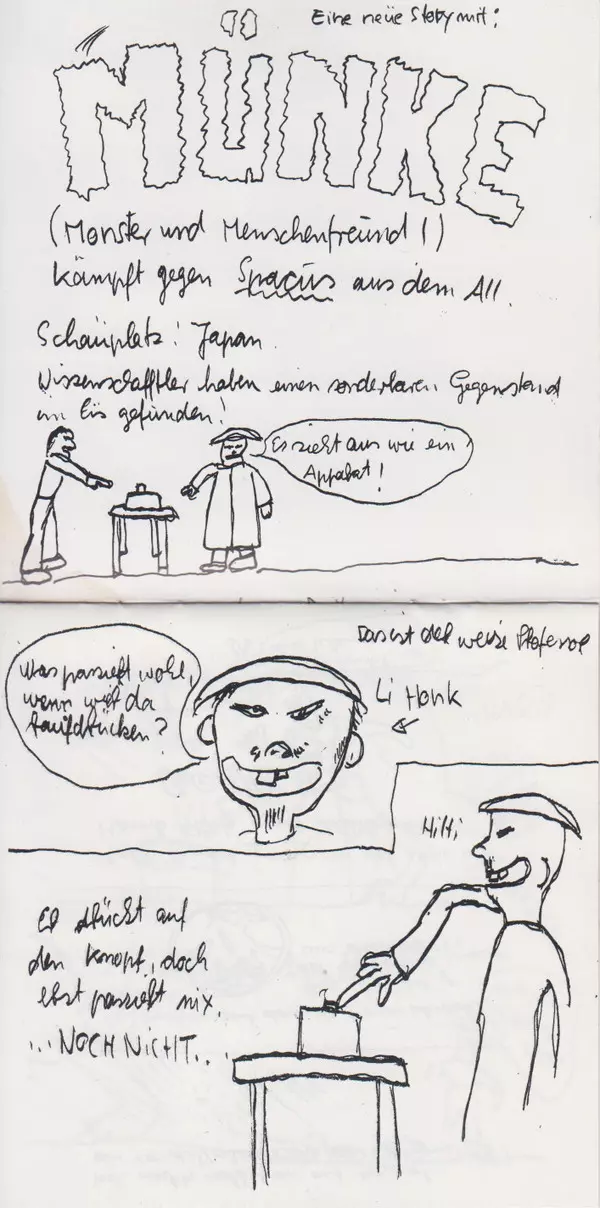 Eine neue Story mit:
MÜNKE
(Monster und Menschenfreund!)
kämpft gegen Spacius aus dem All.
Schauplatz: Japan.
Wissenschafftler haben einen sonderbaren Gegenstand
im Eis gefunden!
Es sieht aus wie ein
Apparat!
Das ist der weise Profersor
Li Honk
Was passiert wohl,
wenn wir da
raufdrücken?
HiHi
Er drückt auf
den Knopf, doch
erst passiert nix.
...NOCH NICHT...